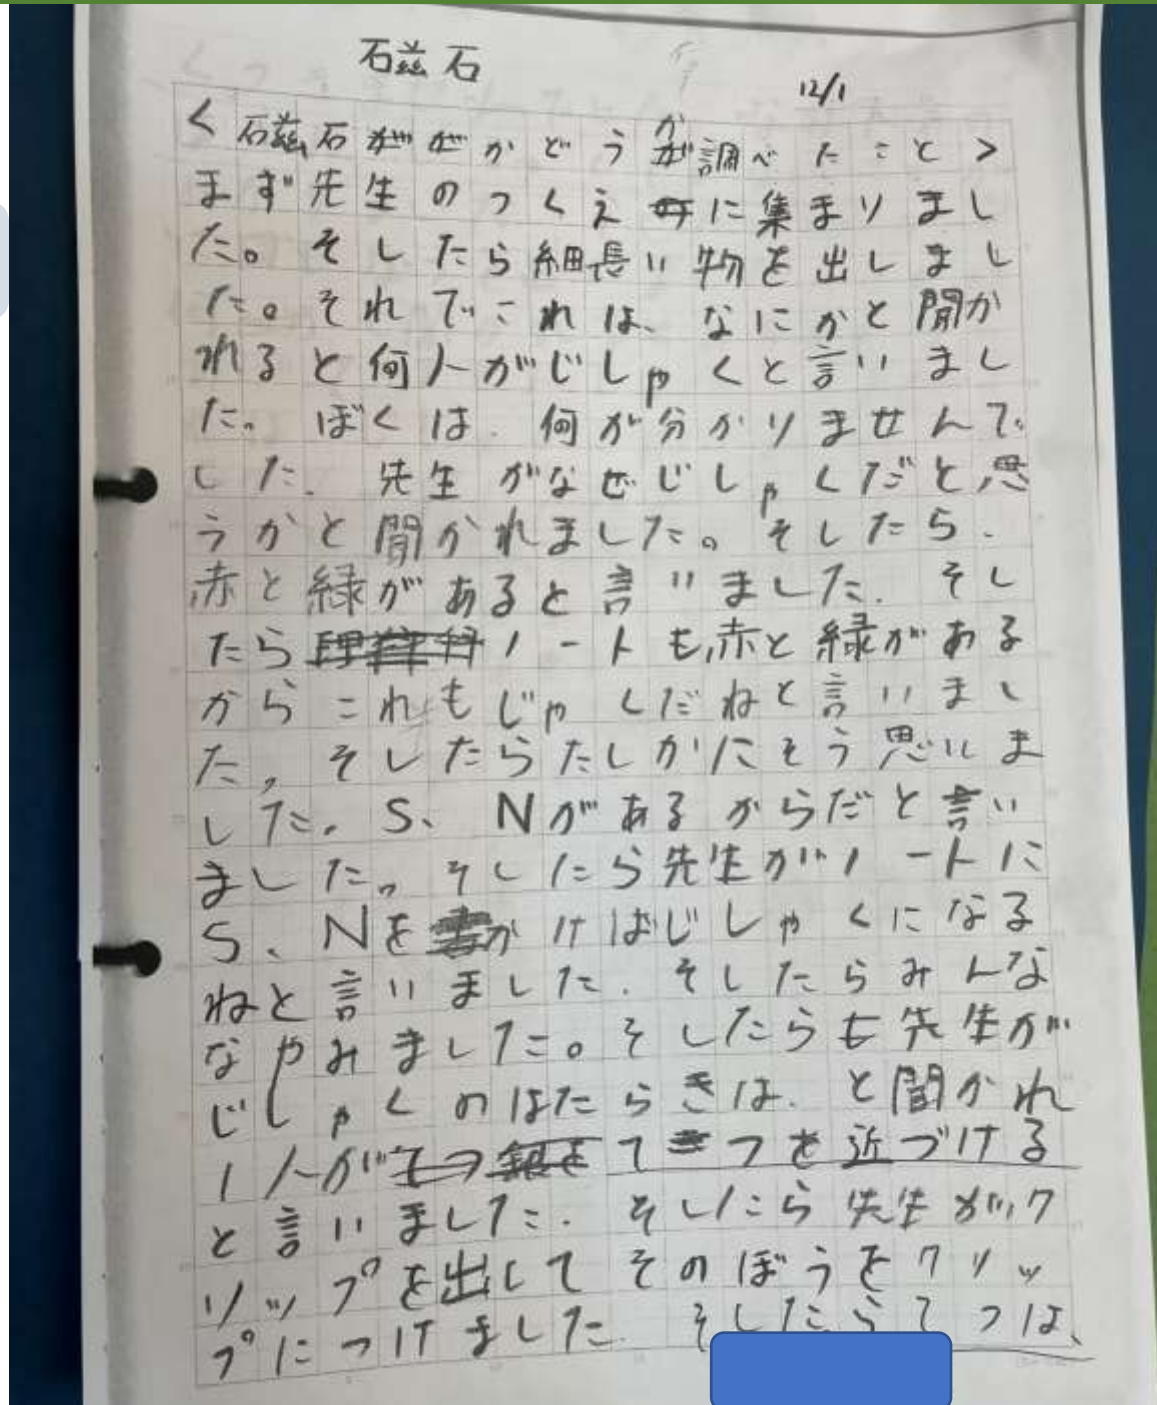 磁石
12/1
<磁石かどうか調べたこと>
まず先生のつくえに集まりまし
た。そしたら細長い物を出しまし
た。それでこれは、なにかと聞か
れると何人がじしゃくと言いまし
た。ぼくは、何が分かりませんで
した。先生がなぜじしゃくだと思
うかと聞かれました。そしたら、
赤と緑があると言いました。そし
たらノートも赤と緑がある
からこれもじゃくだねと言いまし
た。そしたらたしかにそう思いま
した。S、Nがあるからだと言い
ました。そしたら先生がノートに
S、Nをかけばじしゃくになる
ねと言いました。そしたらみんな
なやみました。そしたらも先生が
じしゃくのはたらきは、と聞かれ
1人がてつを近づける
と言いました。そしたら先生がク
リップを出してそのぼうをクリッ
プにつけました。そしたらてつは、